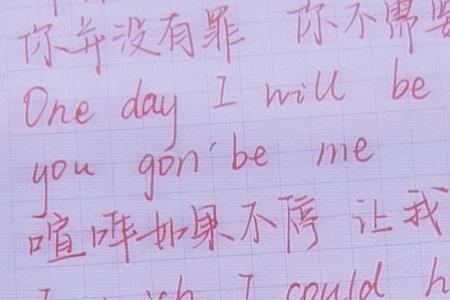 你并没有罪 你不需要
One day I will be
you gon' be me
喧哗如果不停 让我
I wish I could h